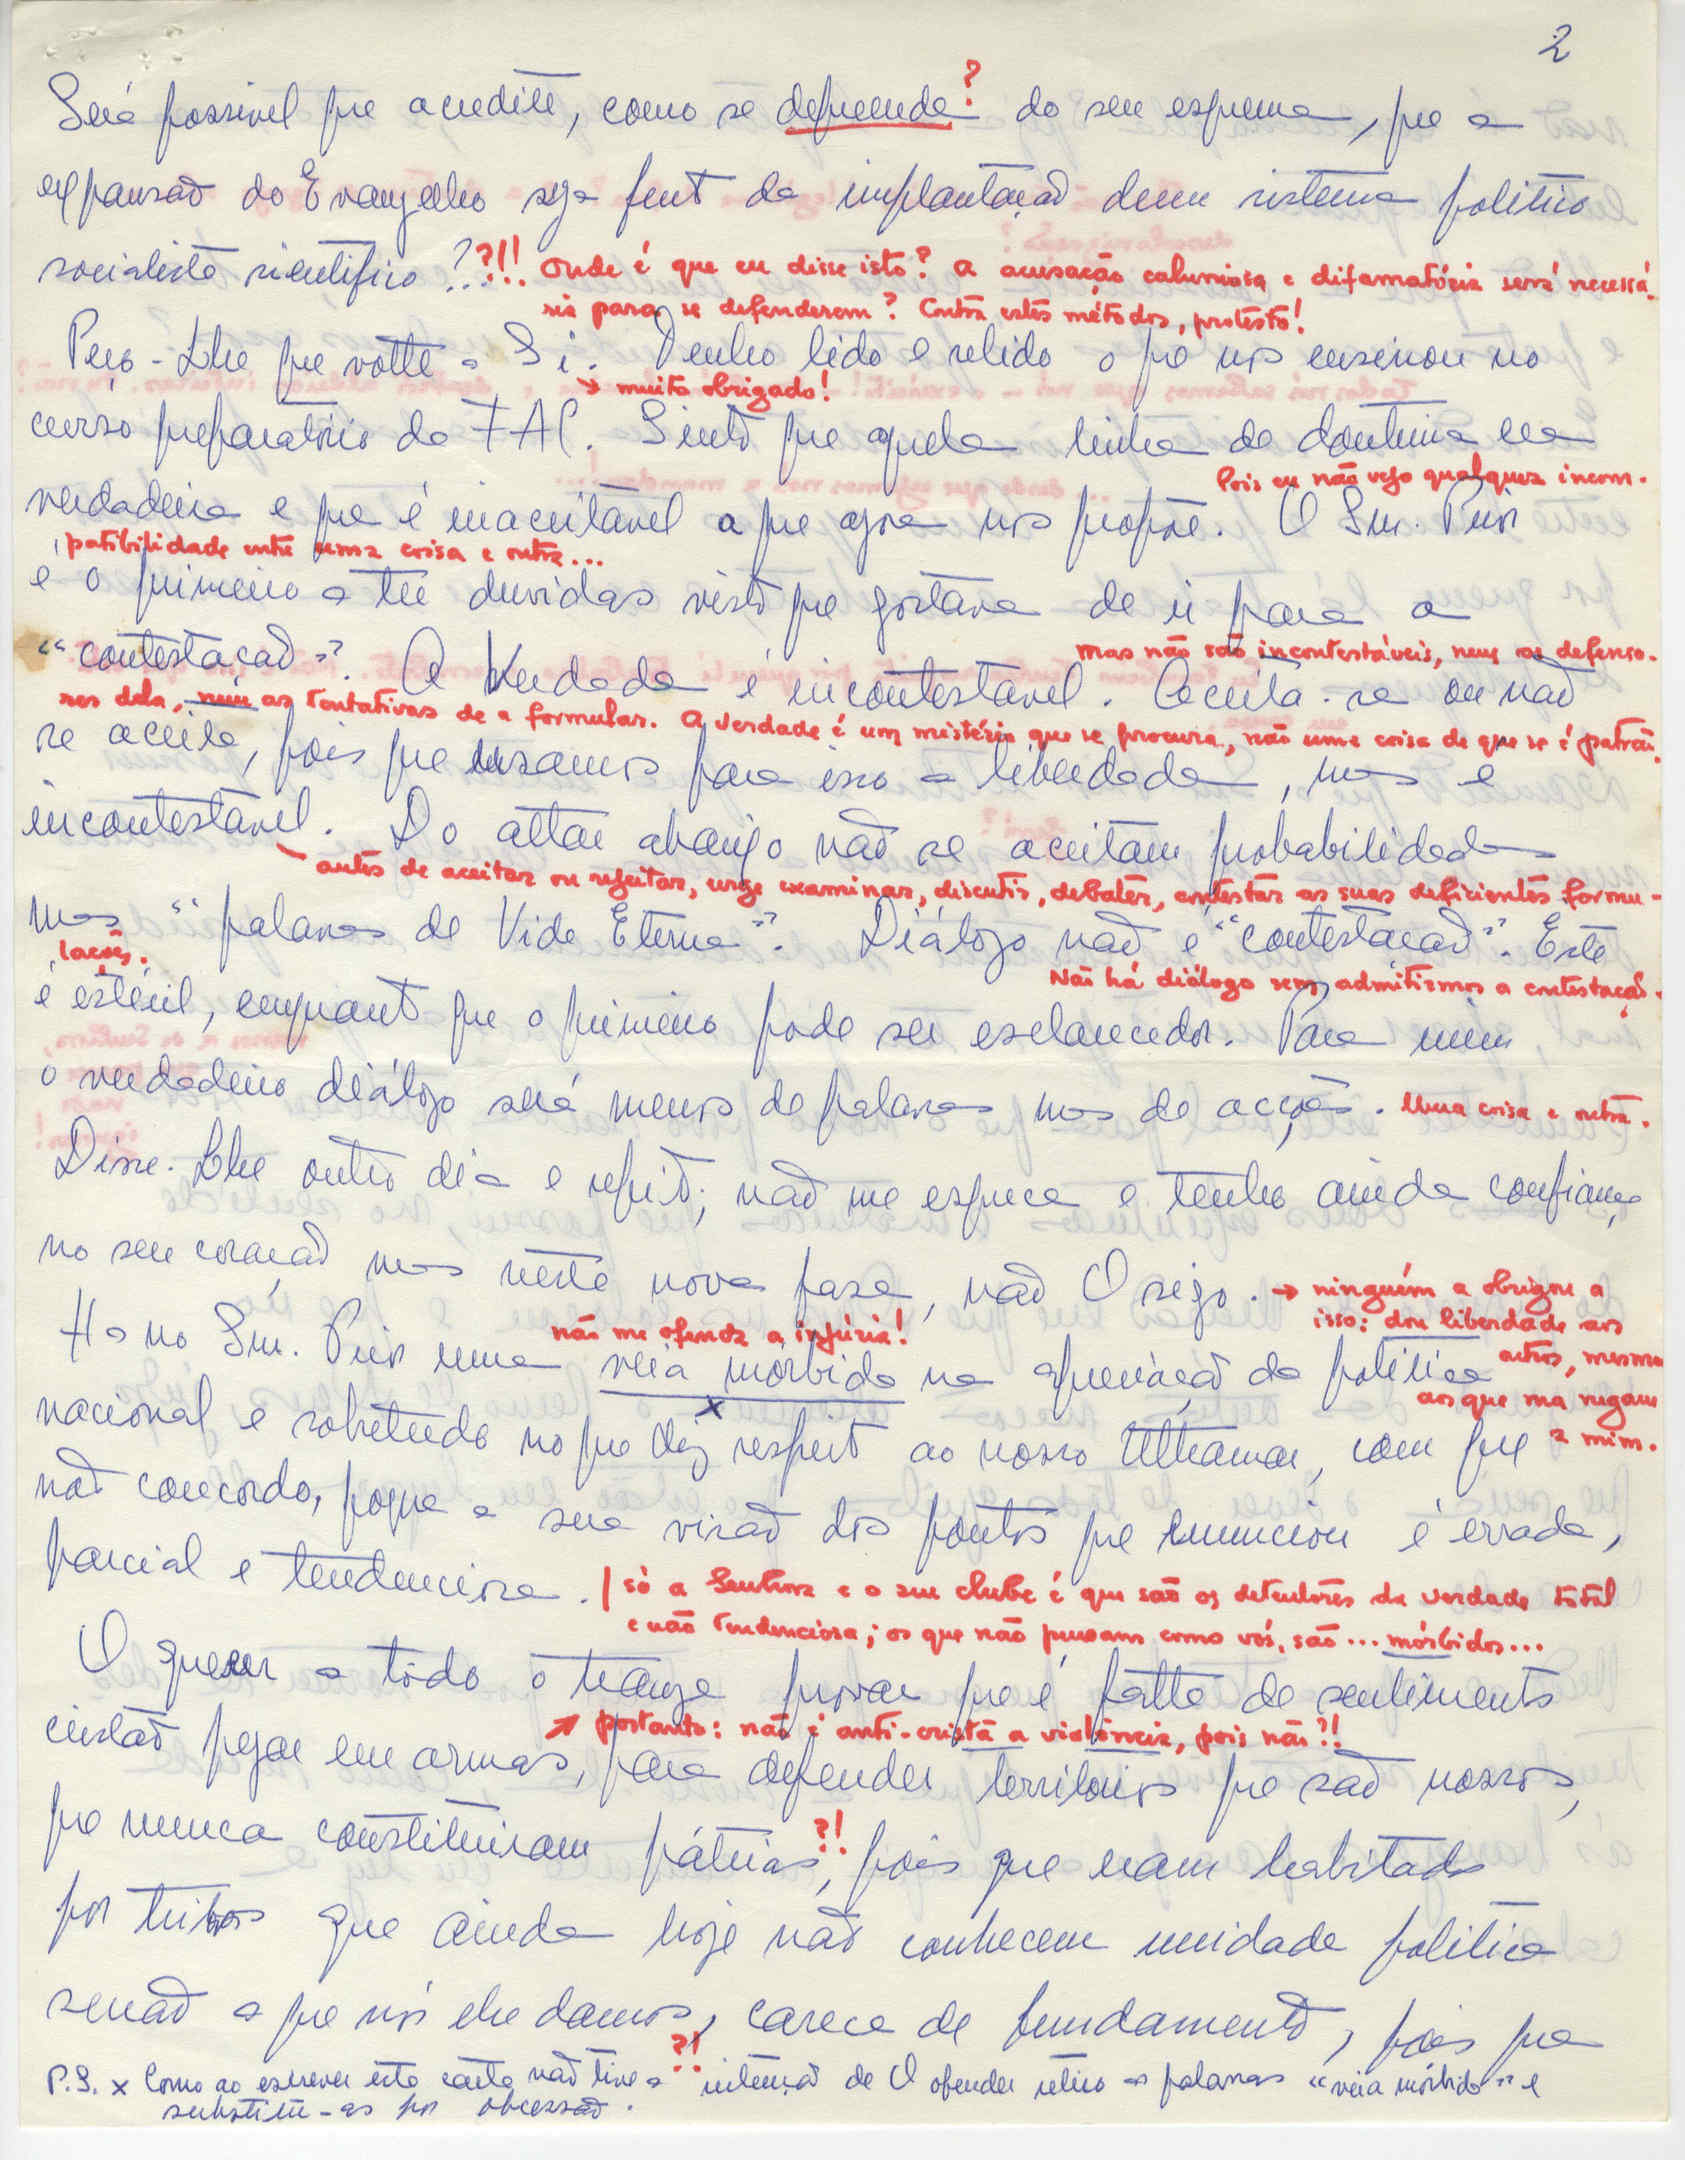 2
Será possivel que acredite, como se depreende? do seu esquema, que a
expansaõ do Evangelho seja fruto da implantaçaõ dum sistema politico
socialista cientifico?..
??!! Onde é que eu disse isto? A acusação caluniosa e difamatória será necessá-
ria para se defenderem? Contra estes métodos, protesto!
Peço-Lhe que volte a Si. Tenho lido e relido o que nos ensinou no
→ muito obrigado!
curso preparatório da FAC. Sinto que aquela linha de doutrina era
Pois eu não vejo qualquer incom-
verdadeira e que é inaceitável a que agora nos propõe. O Snr. Prior
patibilidade entre uma coisa e outra...
é o primeiro a ter duvidas visto que gostava de ir para a
"contestaçaõ". A Verdade é incontestavel. Aceita-se ou naõ
mas não são incontestáveis, nem os defenso-
res dela, nem as tentativas de a formular. A verdade é um mistério que se procura, não uma coisa de que se é patrão.
se aceita, pois que usamos para isso a liberdade, mas é
incontestável. Do altar abaixo naõ se aceitam probabilidades
antes de aceitar ou rejeitar, urge examinar, discutir, debater, contestar as suas deficientes formu-
lações.
mas "palavras de Vida Eterna". Diálogo naõ é "contestaçaõ". Este
Não há diálogo sem admitirmos a contestação.
é estéril, enquanto que o primeiro pode ser esclarecedor. Para mim
o verdadeiro diálogo será menos de palavras mas de acções. Uma coisa e outra.
Disse-Lhe outro dia e repito; naõ me esqueça e tenho ainda confiança
no seu coraçaõ mas nesta nova fase, naõ O sigo.
→ ninguém a obrigou a
isso: dou liberdade aos
outros, mesmo
aos que ma negam
a mim.
Ha no Snr. Prior uma veia mórbida na apreciaçaõ da politica
não me ofende a injúria!
x
nacional e sobretudo no que diz respeito ao nosso Ultramar, com que
naõ concordo, porque a sua visaõ dos pontos que enunciou é errada,
parcial e tendenciosa.
só a Senhora e o seu clube é que são os detentores da verdade total
e não tendenciosa; os que não pensam como vós, são... mórbidos...
O querer a todo o transe provar que é falta de sentimento
cristaõ pegar em armas, para defender territórios que saõ nossos,
portanto: não é anti-cristã a violência, pois não?!
que nunca constituiram pátrias?!, pois que eram habitados
por tribos que ainda hoje naõ conhecem unidade politica
senaõ a que nós lhe damos, carece de fundamento, pois que
?!
P.S. x Como ao escrever esta carta naõ tive a intençaõ de O ofender retiro as palavras "veia mórbida" e
substituo-as por obcessaõ.